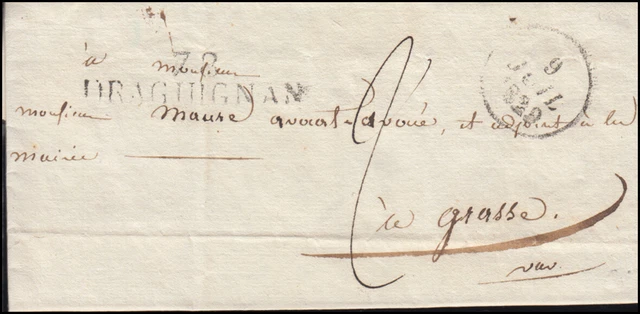 à
monsieur
78
DRAGUIGNAN
monsieur Maure avocat-avoué, et adjoint à la
mairie
à grasse.
var
9
JUIL